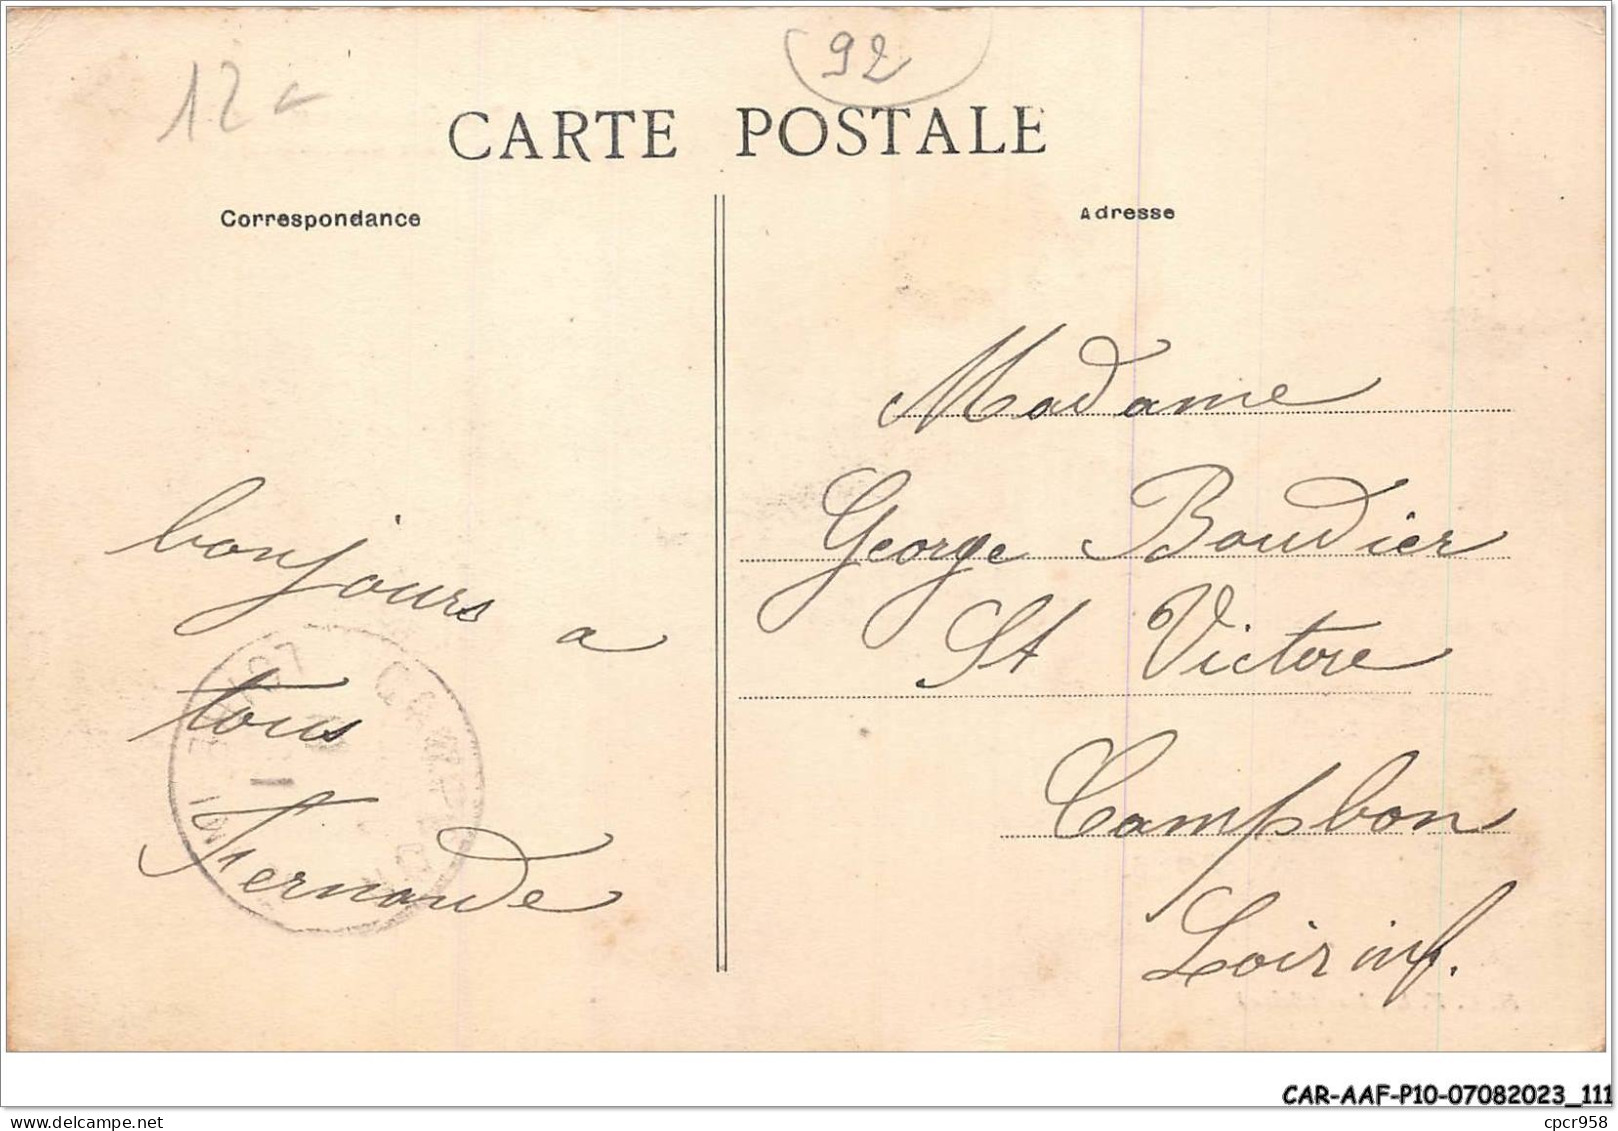 12
92
CARTE POSTALE
Correspondance
Adresse
bonjours a
tous
Fernande
Madame
George Boudier
St Victore
Campbon
Loir inf.
CAMPBON
CAR-AAF-P10-07082023_111
cpcr958